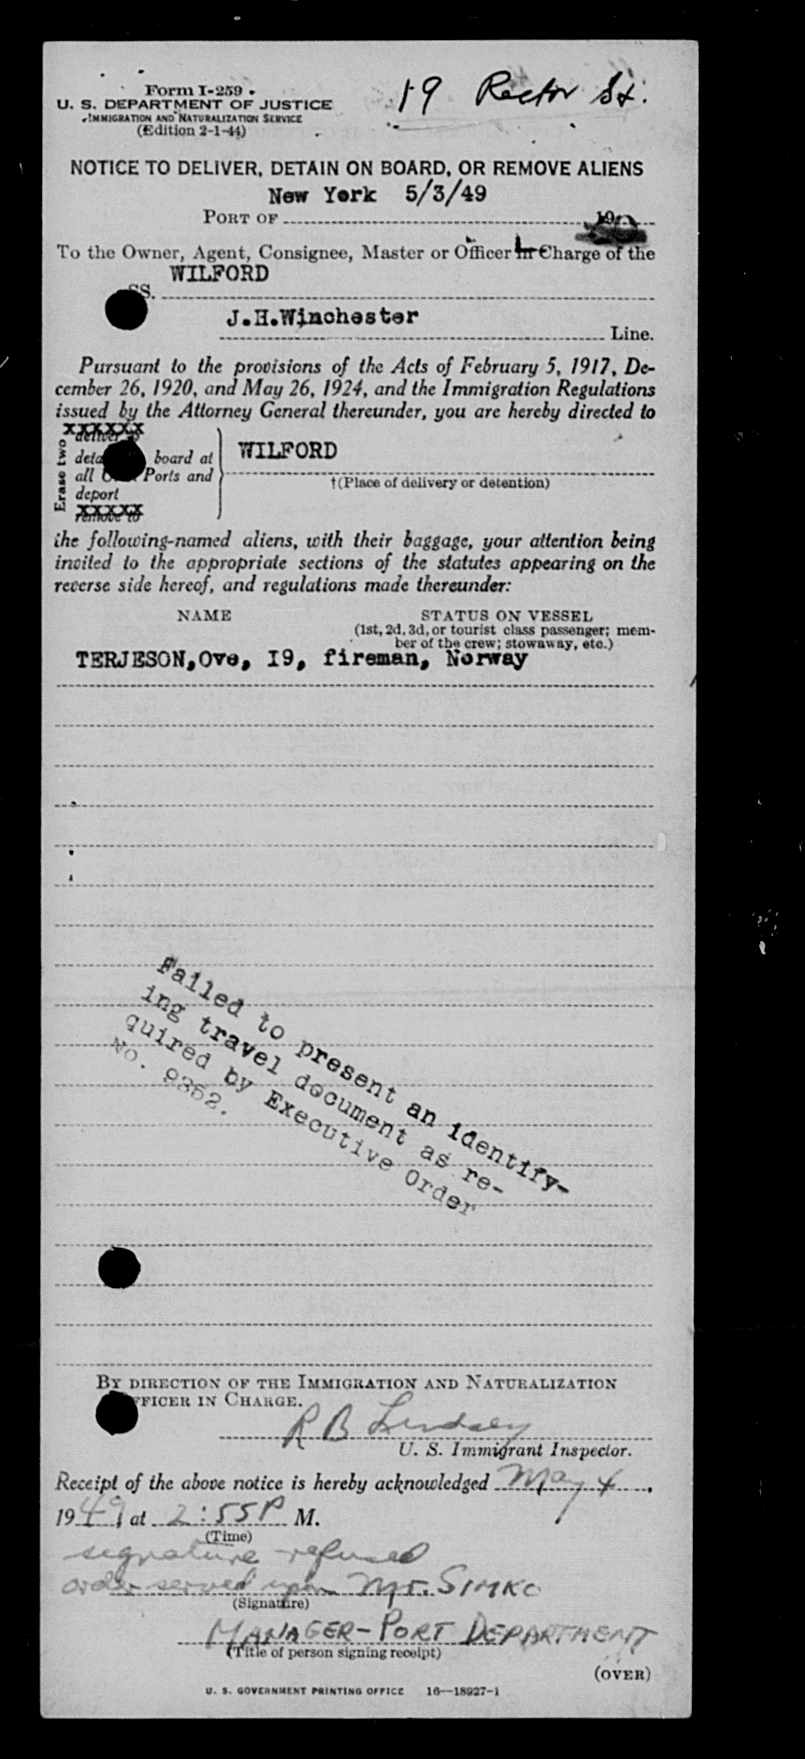 Form I-259
19 Rector St.
U. S. DEPARTMENT OF JUSTICE
IMMIGRATION AND NATURALIZATION SERVICE
(Edition 2-1-44)
NOTICE TO DELIVER, DETAIN ON BOARD, OR REMOVE ALIENS
New York 5/3/49
PORT OF
To the Owner, Agent, Consignee, Master or Officer in Charge of the
WILFORD
SS.
J.H.Winchester
Line.
Pursuant to the provisions of the Acts of February 5, 1917, De-
cember 26, 1920, and May 26, 1924, and the Immigration Regulations
issued by the Attorney General thereunder, you are hereby directed to
XXXXXX
deliver to
Erase two
board at
WILFORD
all Ports and
†(Place of delivery or detention)
deport
XXXXX
remove to
the following-named aliens, with their baggage, your attention being
invited to the appropriate sections of the statutes appearing on the
reverse side hereof, and regulations made thereunder:
NAME
STATUS ON VESSEL
(1st, 2d, 3d, or tourist class passenger; mem-
ber of the crew; stowaway, etc.)
TERJESON,Ove, I9, fireman, Norway
Failed to present an identify-
ing travel document as re-
quired by Executive Order
No. 9352.
BY DIRECTION OF THE IMMIGRATION AND NATURALIZATION
OFFICER IN CHARGE.
R B Lindsey
U. S. Immigrant Inspector.
Receipt of the above notice is hereby acknowledged May 4,
1949 at 2:55 P M.
(Time)
signature refused
order served upon Mr. SIMKO
(Signature)
MANAGER-PORT DEPARTMENT
(Title of person signing receipt)
(OVER)
U. S. GOVERNMENT PRINTING OFFICE 16—18927-1